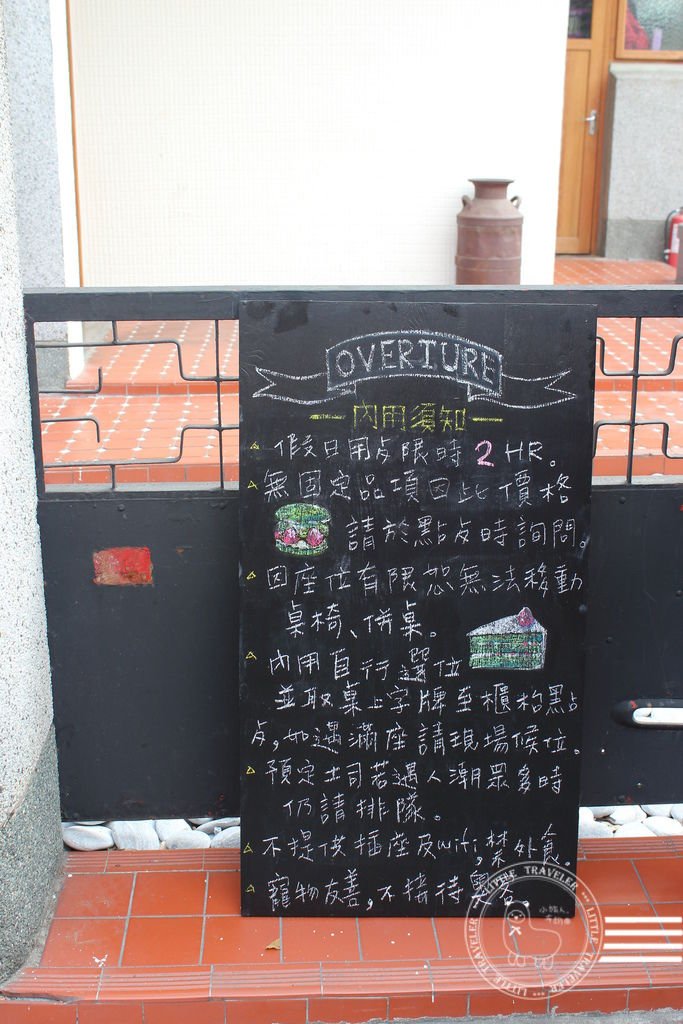 OVERTURE
內用須知
假日用歺限時2HR。
無固定品項因此價格
請於點歺時詢問。
因座位有限恕無法移動
桌椅、併桌。
內用自行選位
並取桌上字牌至櫃枱點
歺,如遇滿座請現場候位。
預定土司若遇人潮眾多時
仍請排隊。
不提供插座及wifi,禁外食。
寵物友善,不接待奧客。
LITTLE TRAVELER ... LITTLE TRAVELER ... LITTLE TRAVELER ...
小旅人